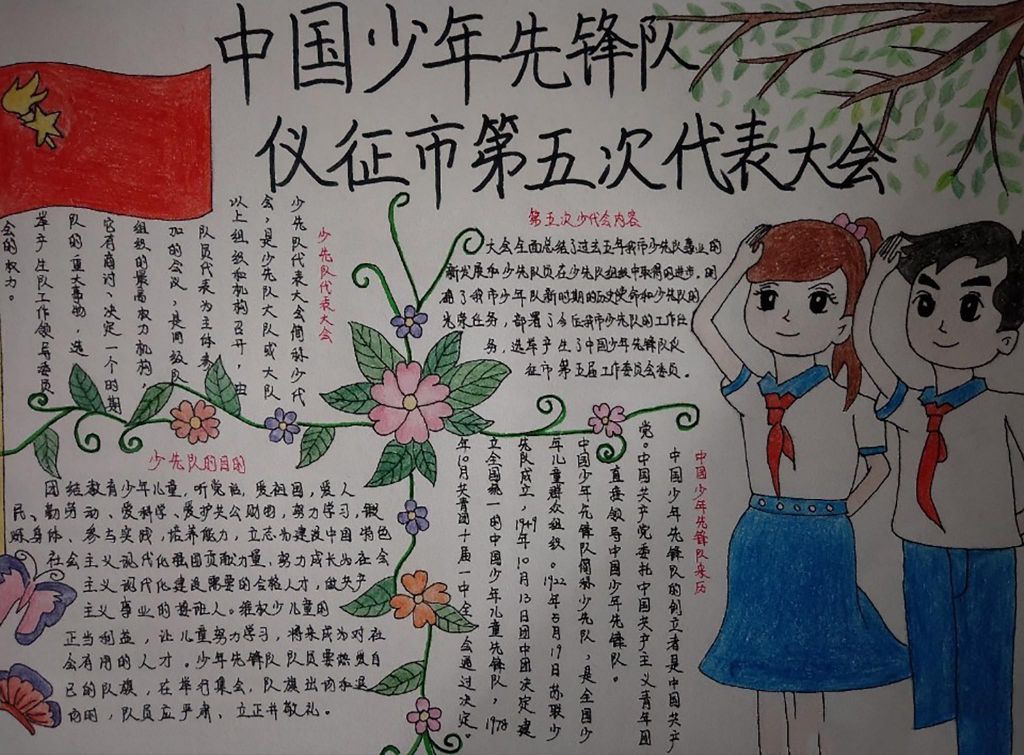 中国少年先锋队
仪征市第五次代表大会
少先队代表大会
少先队代表大会简称少代
会，是少先队大队或大队
以上组织和机构召开，由
队员代表为主体参
加的会议，是同级队
组织的最高权力机构，
它有商讨、决定一个时期
队的重大事物，选
举产生队工作领导委员
会的权力。
第五次少代会内容
大会全面总结了过去五年我市少先队事业的
新发展和少先队员在少先队组织中取得的进步，明
确了我市少年队新时期的历史使命和少先队的
光荣任务，部署了今后我市少先队的工作任
务，选举产生了中国少年先锋队仪
征市第五届工作委员会委员。
少先队的目的
团结教育少年儿童，听党话，爱祖国，爱人
民、勤劳动、爱科学、爱护公共财物，努力学习，锻
炼身体、参与实践，培养能力，立志为建设中国特色
社会主义现代化强国贡献力量，努力成长为社会
主义现代化建设需要的合格人才，做共产
主义事业的接班人。维权少儿童的
正当利益，让儿童努力学习，将来成为对社
会有用的人才。少年先锋队队员要热爱自
己的队旗，在举行集会，队旗出场和退
场时，队员应严肃、立正并敬礼。
中国少年先锋队来历
中国少年先锋队的创立者是中国共产
党。中国共产党委托中国共产主义青年团
直接领导中国少年先锋队。
中国少年先锋队简称少先队，是全国少
年儿童群众组织。1922年5月19日苏联少
先队成立，1949年10月13日团中团决定建
立全国统一的中国少年儿童先锋队，1978
年10月共青团十届一中全会通过决定。